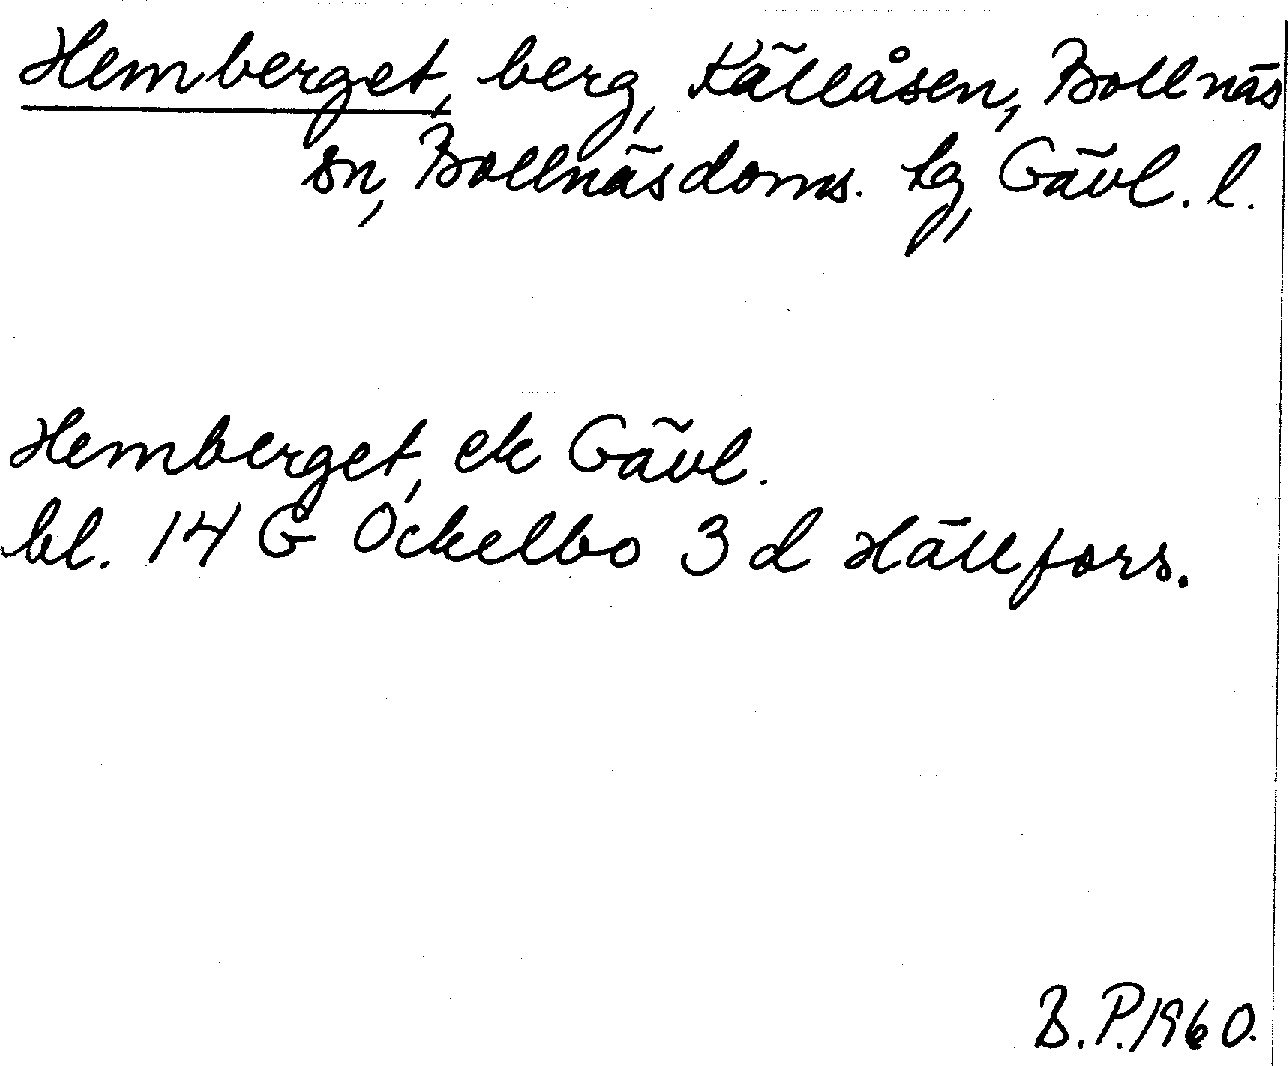 Hemberget, berg, Källåsen, Bollnäs
sn, Bollnäs doms. tg, Gävl. l.
Hemberget, ek Gävl.
bl. 14 G Ockelbo 3 d Hällfors.
B.P. 1960.